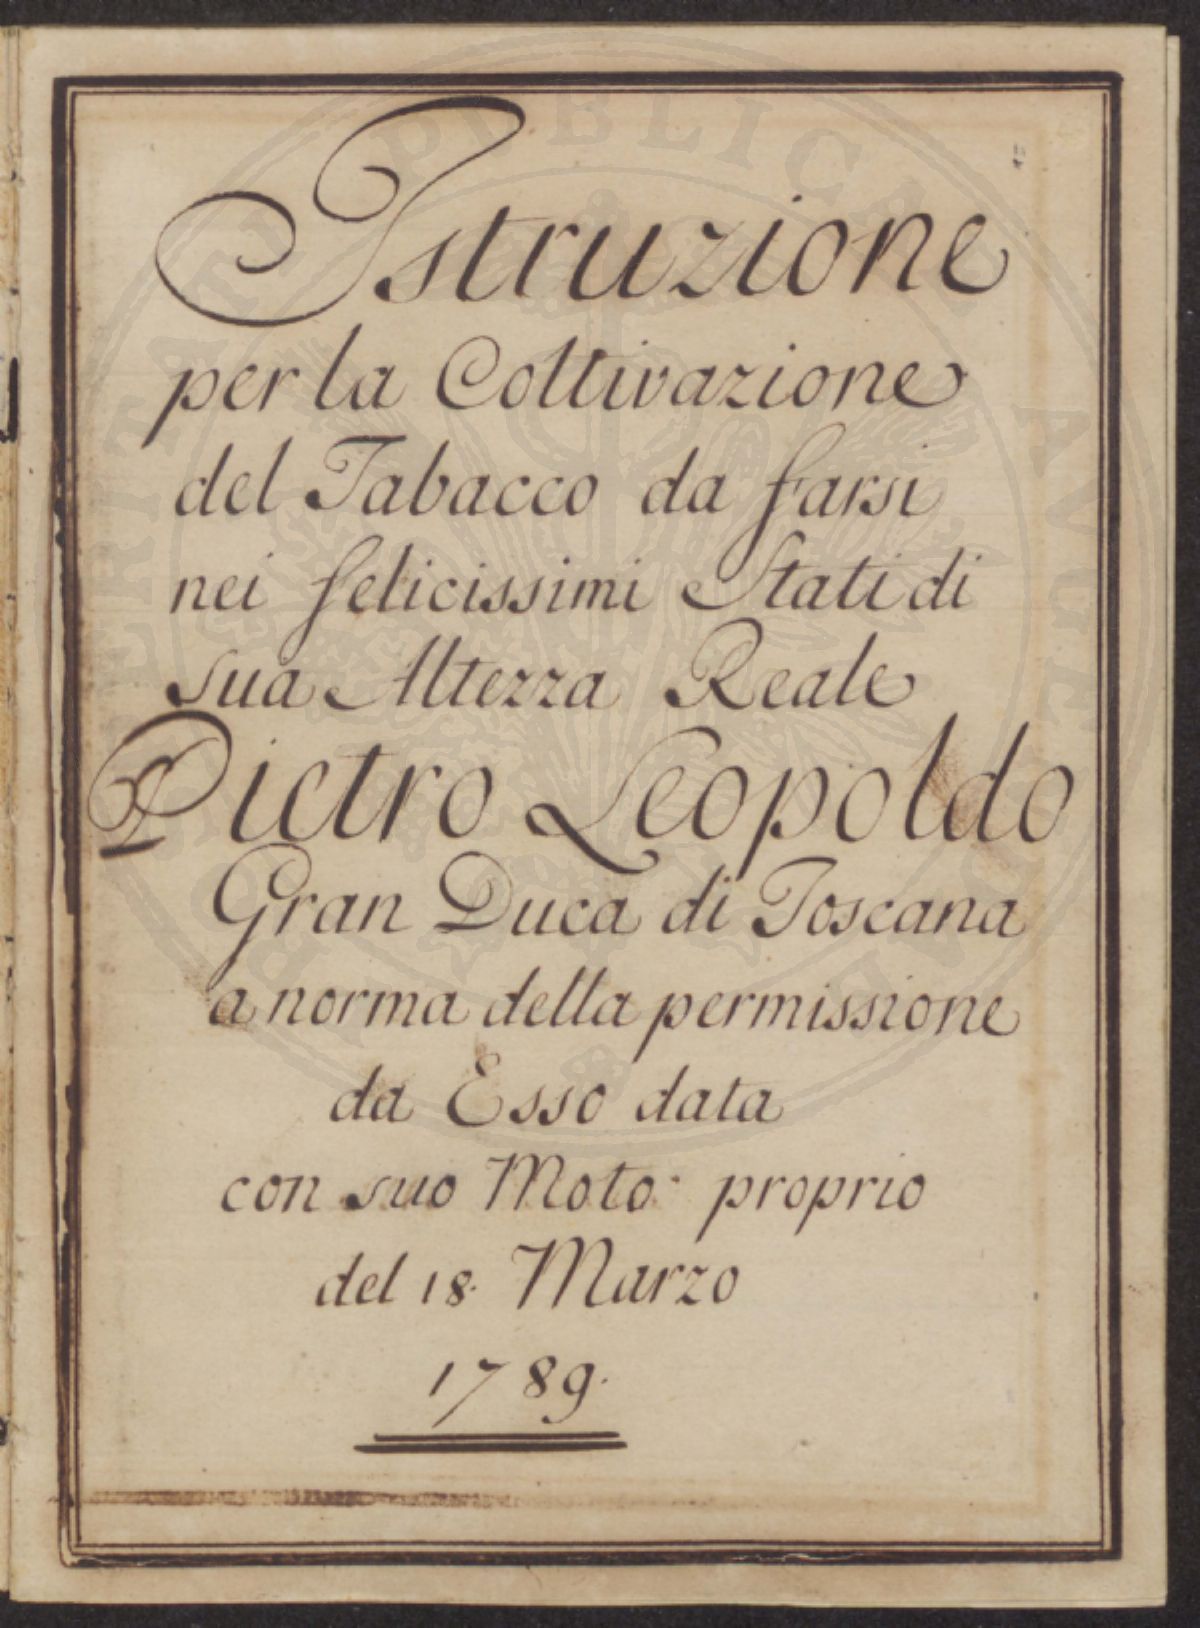 Istruzione
per la Coltivazione
del Tabacco da farsi
nei felicissimi Stati di
sua Altezza Reale
Pietro Leopoldo
Gran Duca di Toscana
a norma della permissione
da Esso data
con suo Moto proprio
del 18. Marzo
1789.